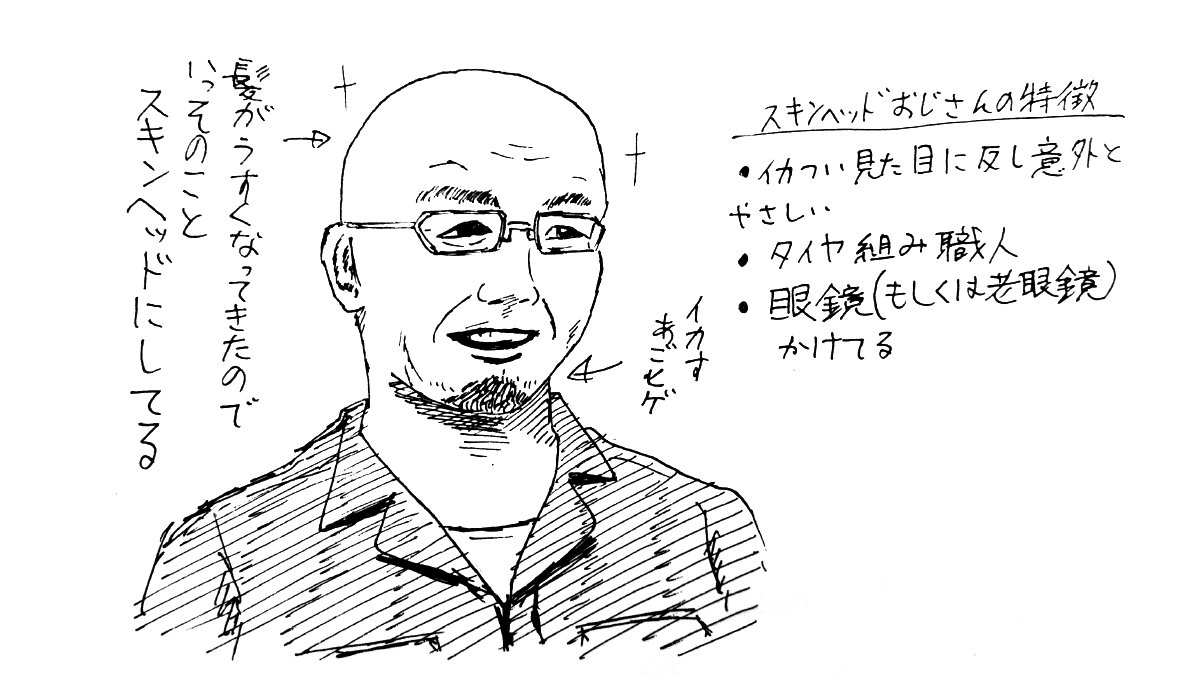 髪がうすくなってきたので
いっそのこと
スキンヘッドにしてる
スキンヘッドおじさんの特徴
・イカつい見た目に反し意外と
やさしい
・タイヤ組み職人
・眼鏡(もしくは老眼鏡)
かけてる
イカす
あごヒゲ